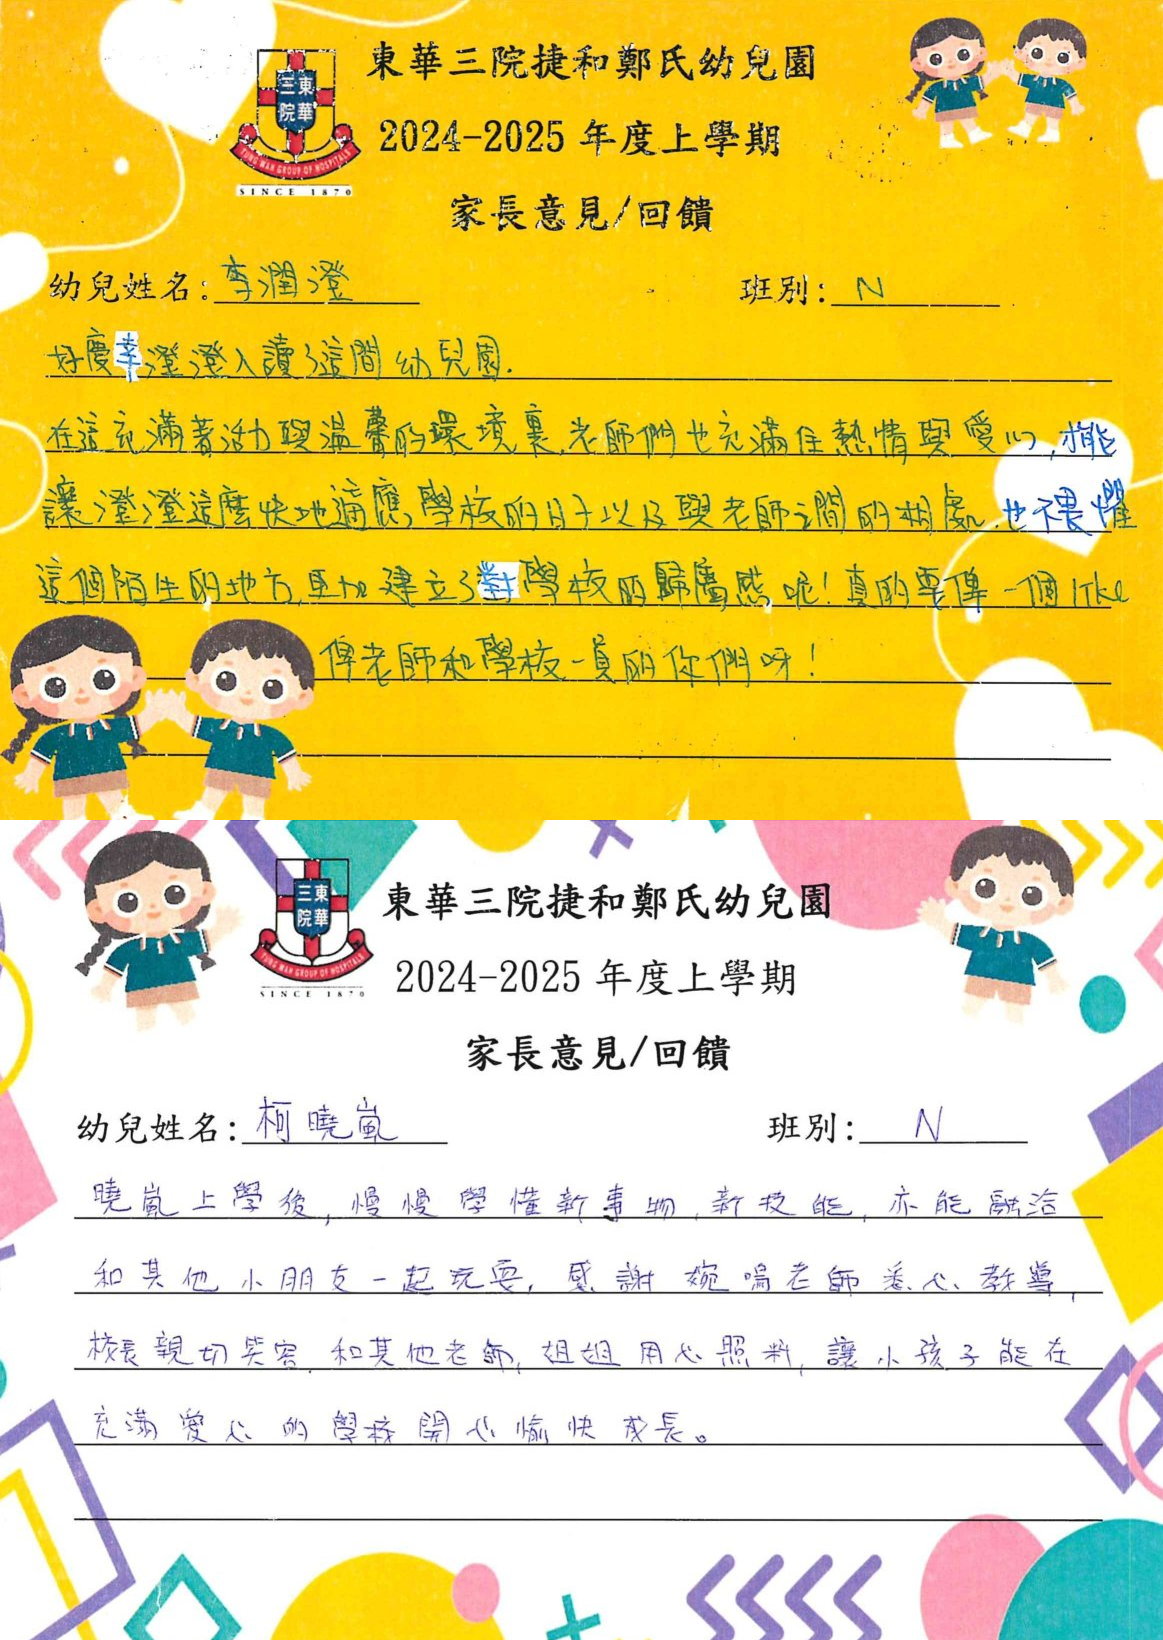 東華三院捷和鄭氏幼兒園
三東
院華
TUNG WAH GROUP OF HOSPITALS
SINCE 1870
2024-2025 年度上學期
家長意見/回饋
幼兒姓名：李潤澄 班別：N
好慶幸澄澄入讀了這間幼兒園.
在這充滿著活力與溫馨的環境裏,老師們也充滿住熱情與愛心,才能
讓澄澄這麼快地適應學校的日子以及與老師之間的相處.也不畏懼
這個陌生的地方,更加建立了對學校的歸屬感呢！真的要俾一個like
俾老師和學校一員的你們呀！
東華三院捷和鄭氏幼兒園
三東
院華
TUNG WAH GROUP OF HOSPITALS
SINCE 1870
2024-2025 年度上學期
家長意見/回饋
幼兒姓名：柯曉嵐 班別：N
曉嵐上學後,慢慢學懂新事物,新技能,亦能融洽
和其他小朋友一起玩耍,感謝婉鳴老師悉心教導,
校長親切笑容,和其他老師,姐姐用心照料,讓小孩子能在
充滿愛心的學校開心愉快成長。